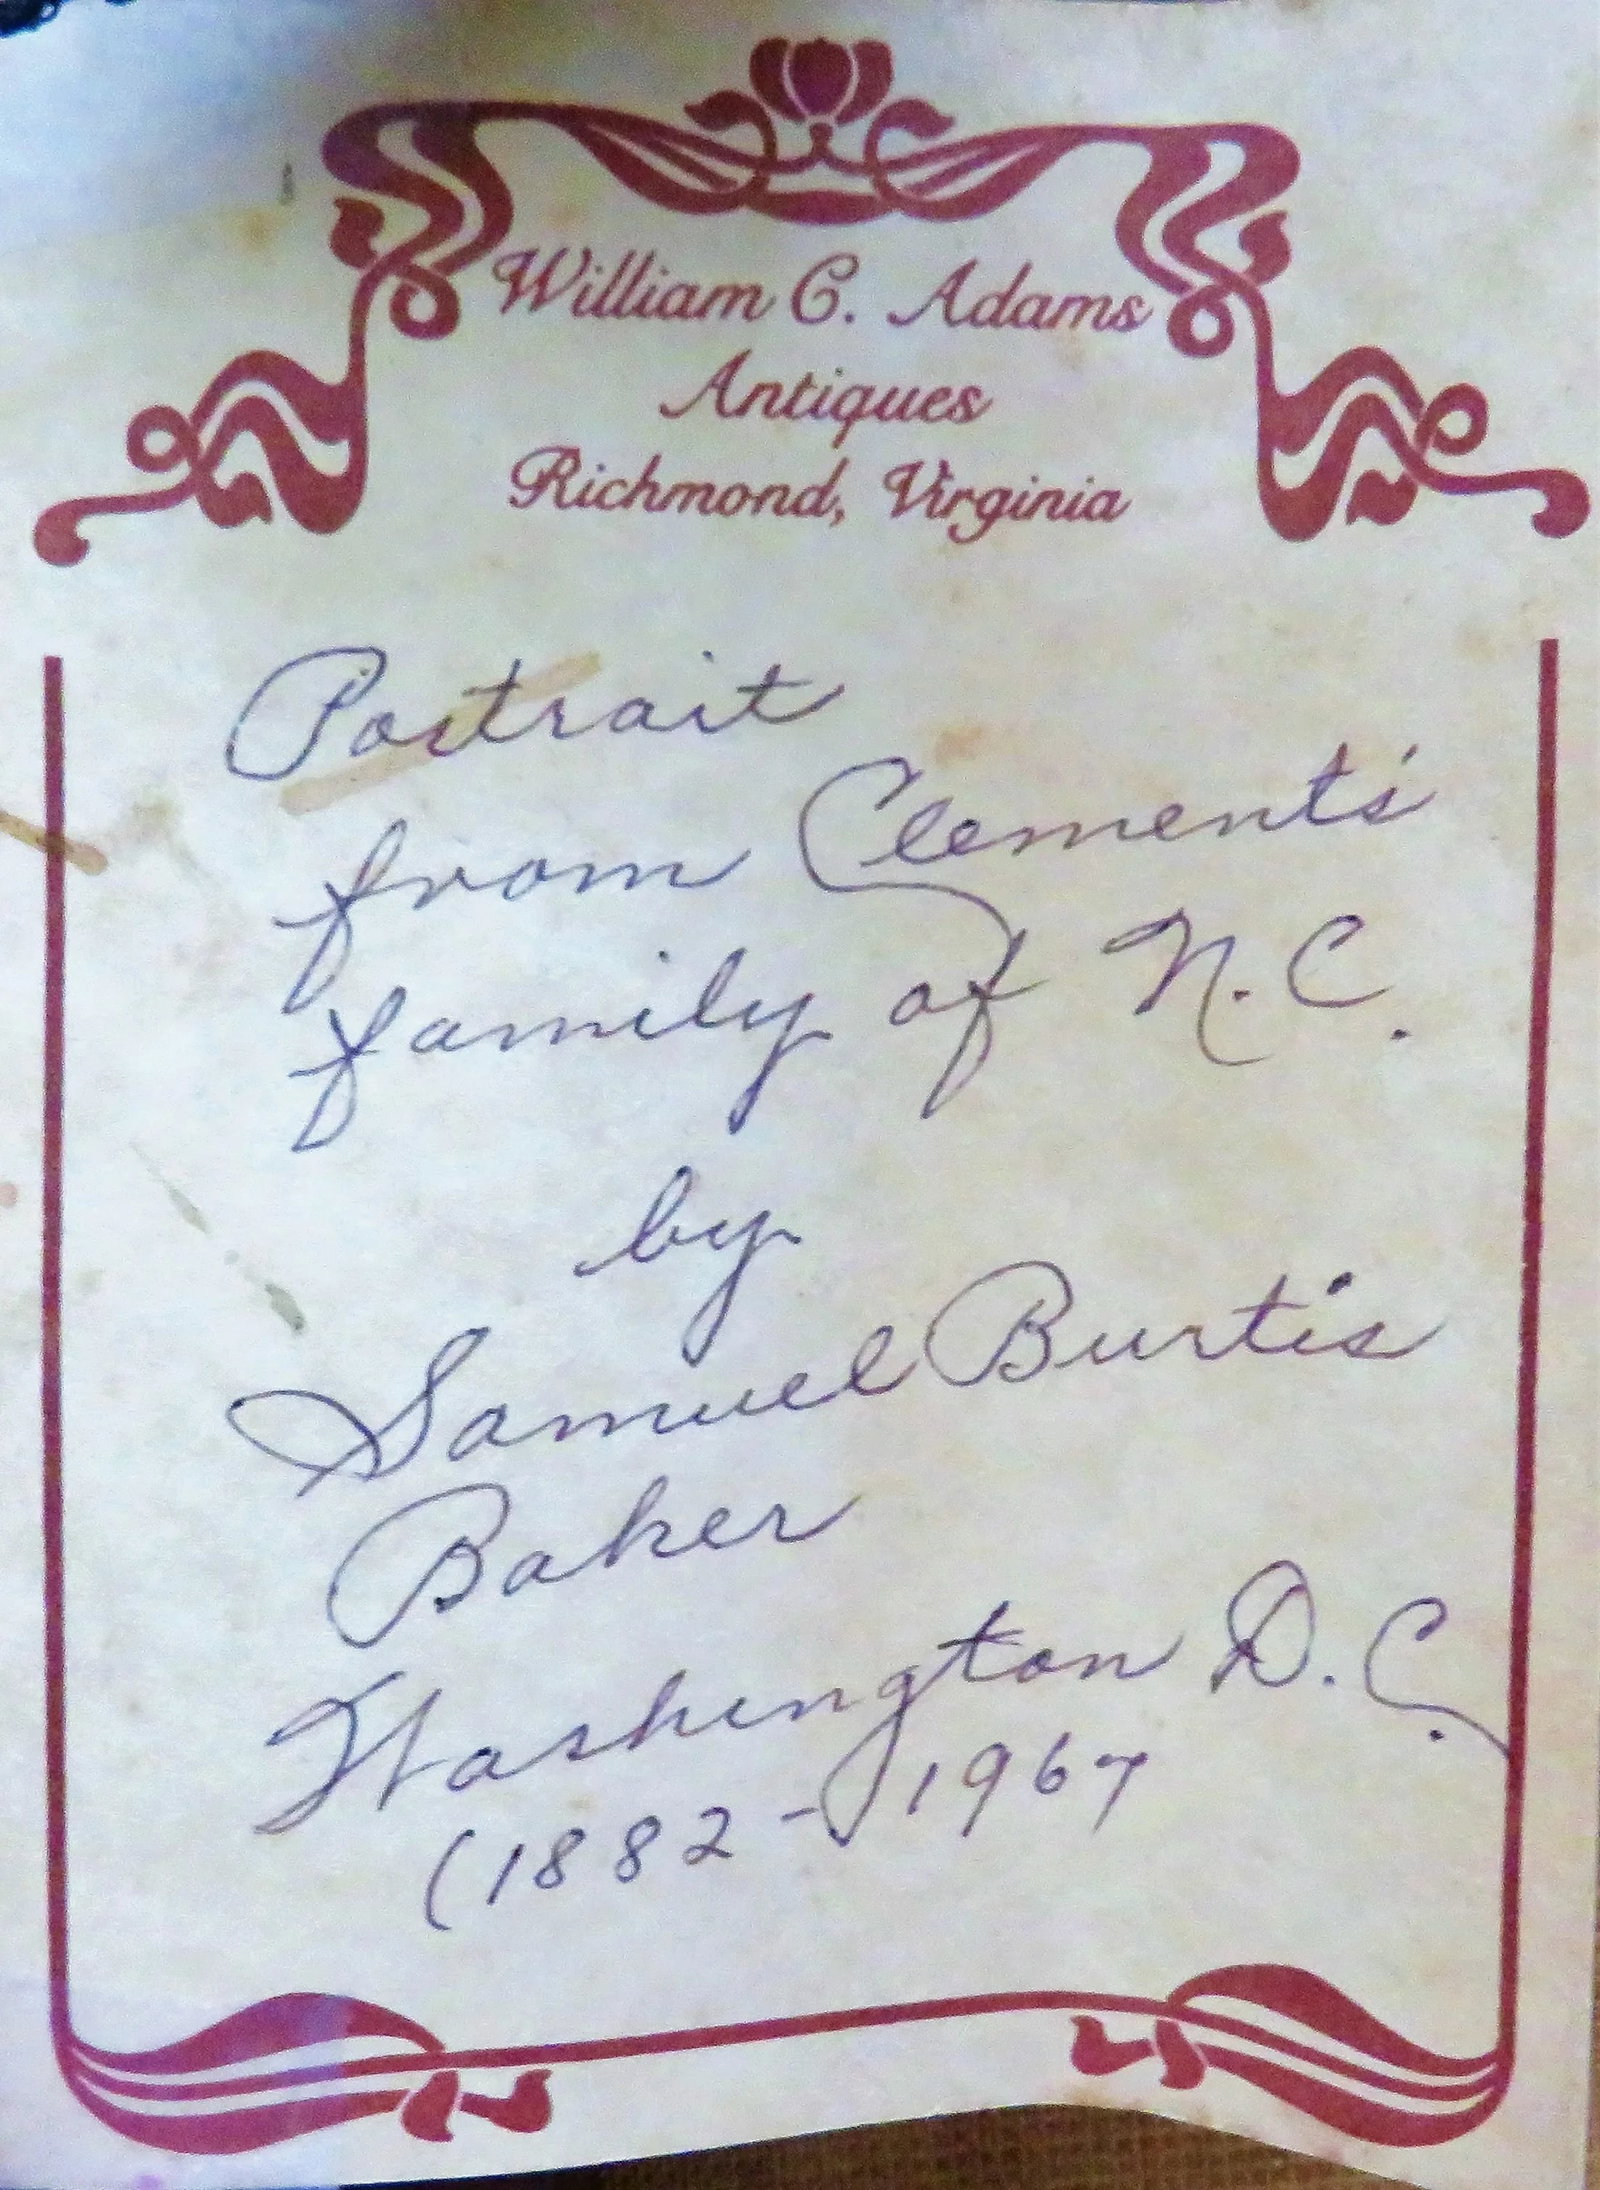 William C. Adams
Antiques
Richmond, Virginia
Portrait
from Clements'
family of N.C.
by
Samuel Burtis
Baker
Washington D.C.
(1882-1967